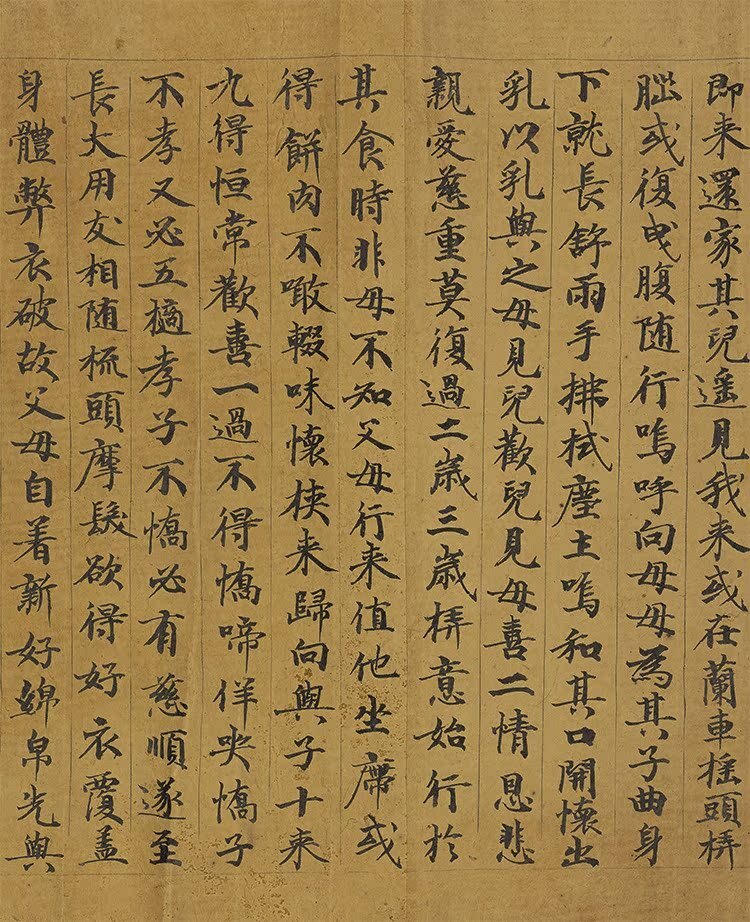 即来還家其兒遥見我来或在蘭車摇頭㧣
𦛁或復曳腹随行嗚呼向母母為其子曲身
下就長舒兩手拂拭塵土嗚和其口開懷出
乳以乳與之母見兒歡兒見母喜二情恩悲
親愛慈重莫復過二歲三歲㧣意始行於
其食時非母不知父母行来值他坐席或
得餅肉不噉輟味懷挾来歸向與子十来
九得恒常歡喜一過不得憍啼佯哭憍子
不孝又必五擿孝子不憍必有慈順遂至
長大用友相随梳頭摩髮欲得好衣覆盖
身體弊衣破故父母自着新好綿帛先與